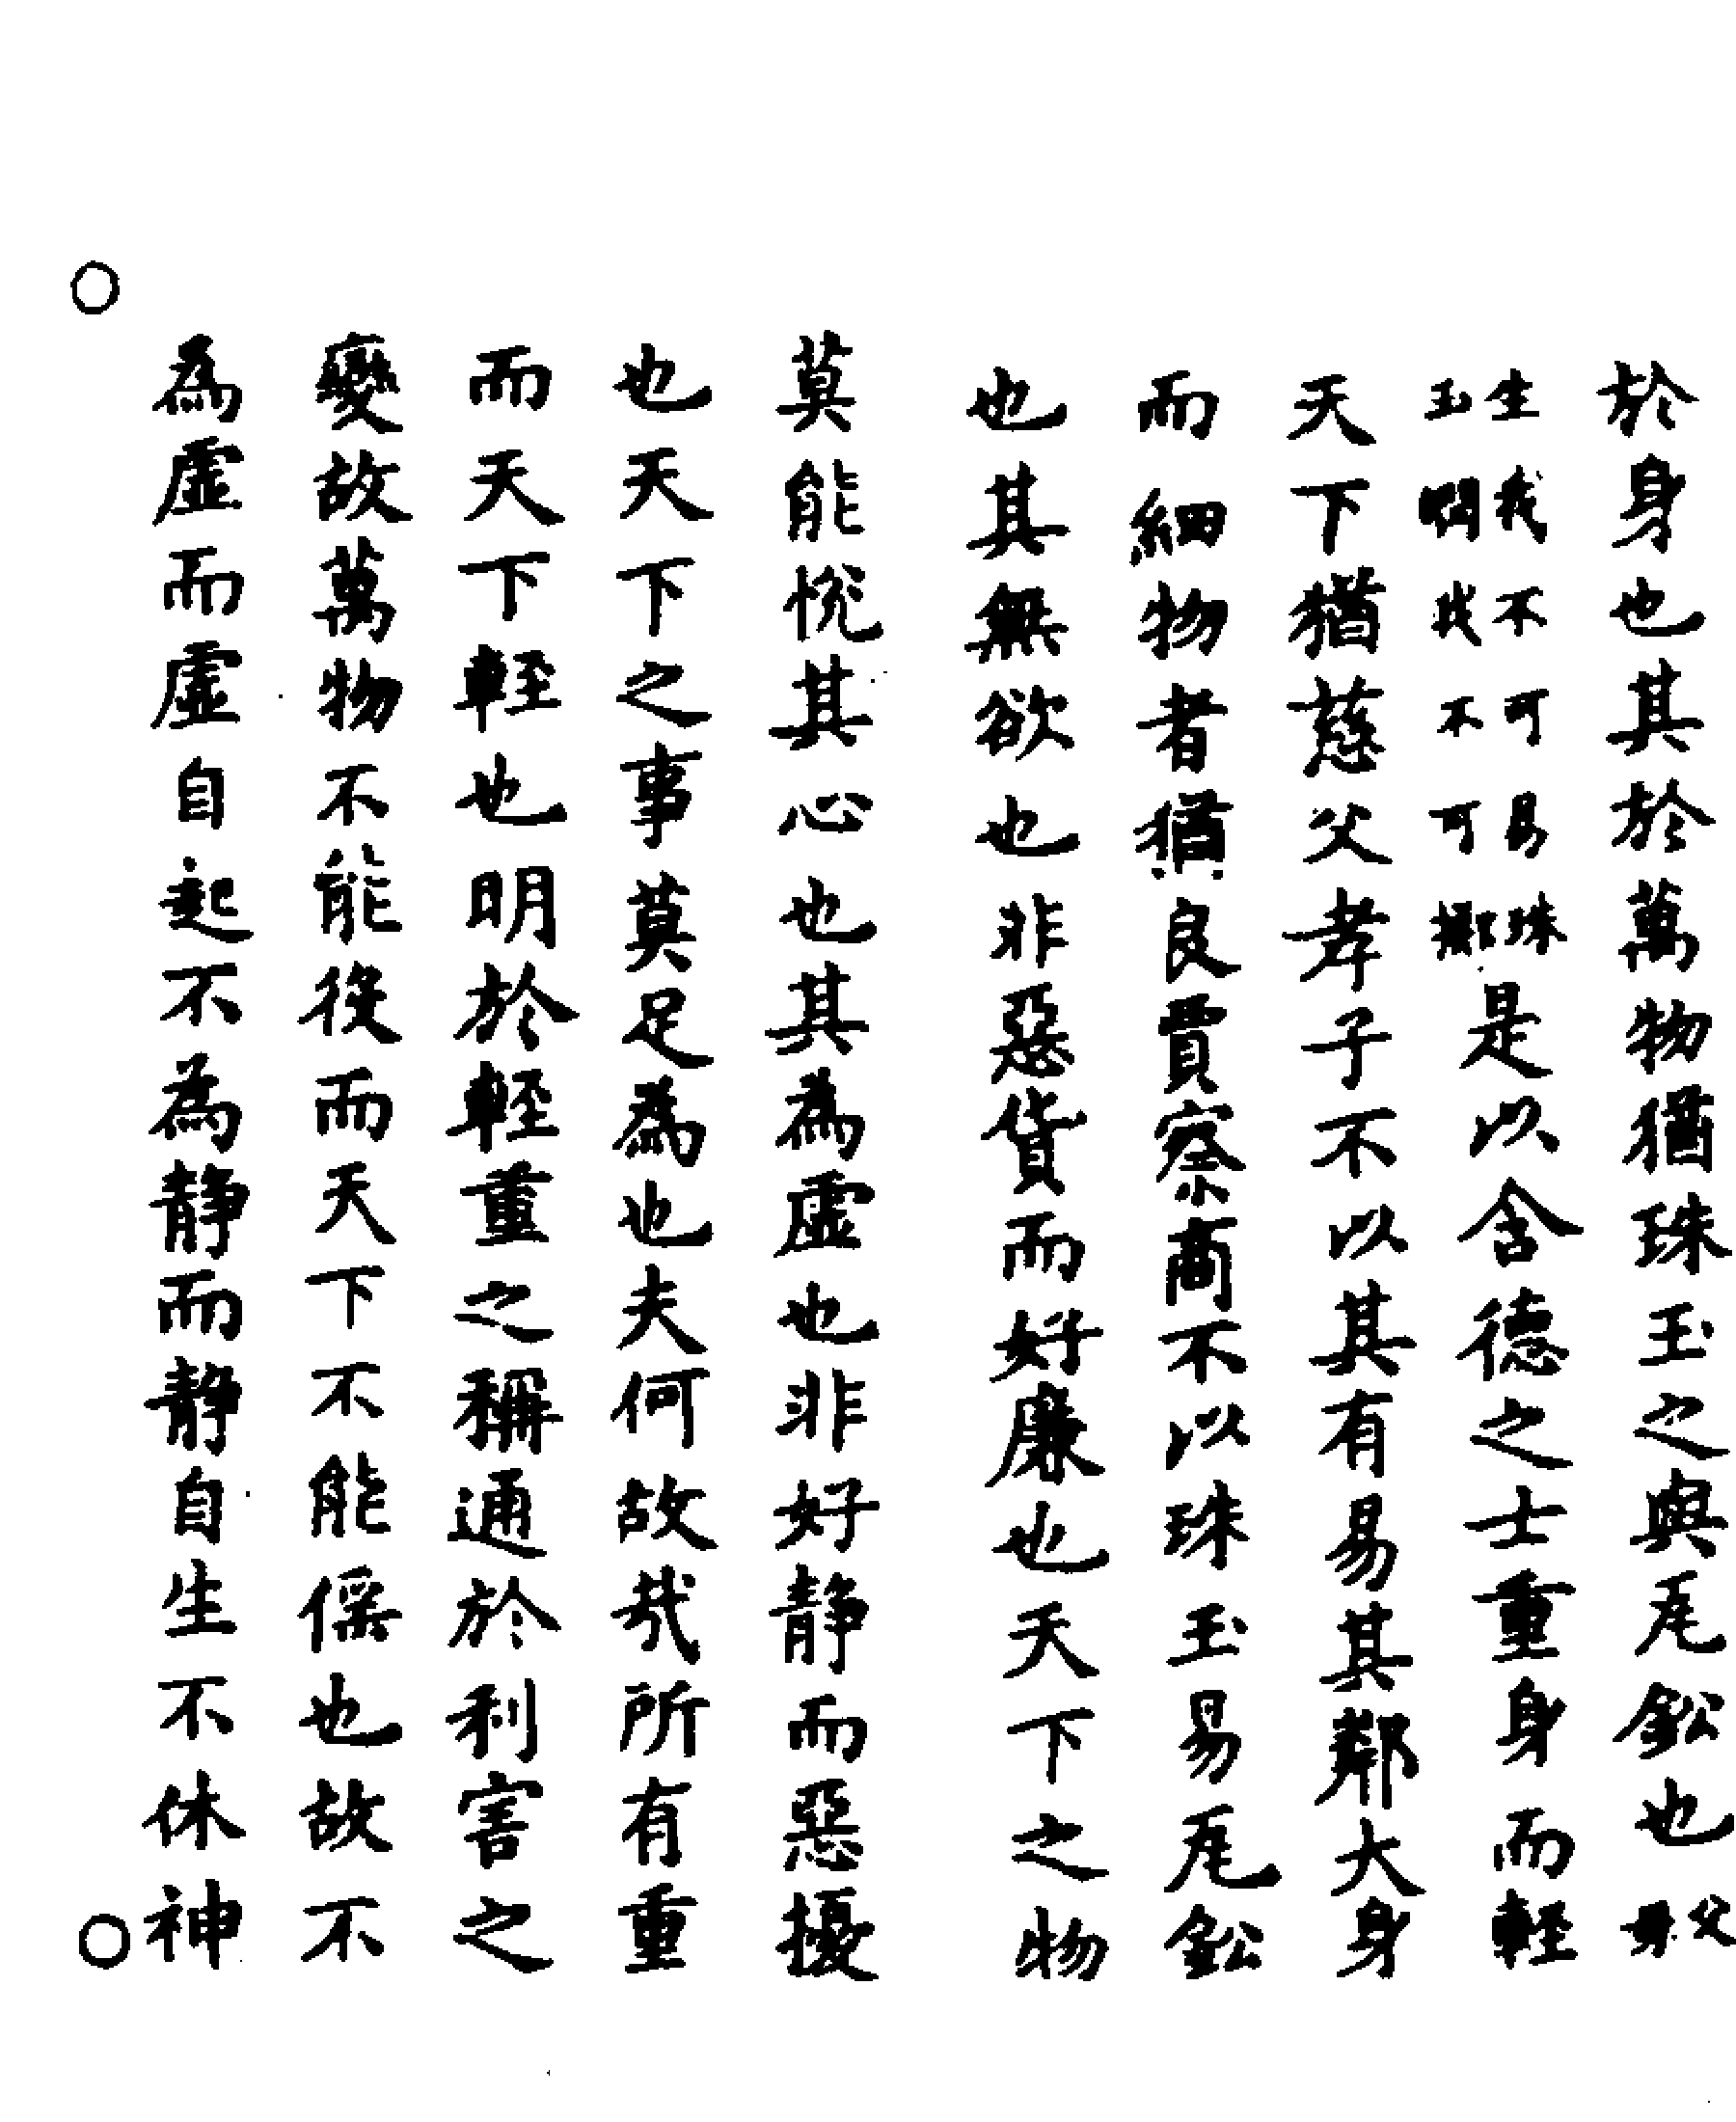 於身也其於萬物猶珠玉之與瓦鈆也父母
生我不可易珠玉閉我不可擲是以含德之士重身而輕
天下猶慈父孝子不以其有易其鄰大身
而細物者猶良賈察商不以珠玉易瓦鈆
也其無欲也非惡貨而好廉也天下之物
莫能悅其心也其為虛也非好靜而惡擾
也天下之事莫足為也夫何故哉所有重
而天下輕也明於輕重之稱通於利害之
變故萬物不能役而天下不能傜也故不
為虛而虛自起不為靜而靜自生不休神